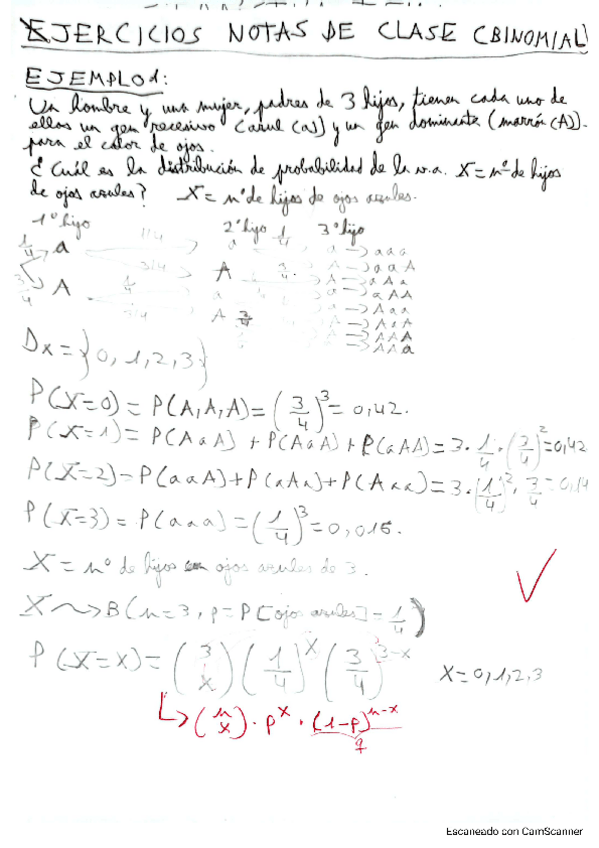 EJERCICIOS NOTAS DE CLASE (BINOMIAL)
EJEMPLO 1:
Un hombre y una mujer, padres de 3 hijos, tienen cada uno de
ellos un gen recesivo (azul (a)) y un gen dominante (marrón (A)).
para el color de ojos.
¿Cuál es la distribución de probabilidad de la v.a. X = nº de hijos
de ojos azules? X = nº de hijos de ojos azules.
1º hijo 2º hijo 1/4 3º hijo
1/4 a 1/4 a a → a a a
3/4 A 3/4 A → a a A
3/4 A 1/4 a → a A a
A → a A A
a → A a a
3/4 A 3/4 A → A a A
→ A A A
→ A A a
Dx = {0, 1, 2, 3}
P(X=0) = P(A,A,A) = (3/4)^3 = 0,42.
P(X=1) = P(A a A) + P(A a A) + P(a A A) = 3 · 1/4 · (3/4)^2 = 0,42
P(X=2) = P(a a A) + P(a A a) + P(A a a) = 3 · (1/4)^2 · 3/4 = 0,14
P(X=3) = P(a a a) = (1/4)^3 = 0,015.
X = nº de hijos con ojos azules de 3.
X ~> B(n=3, p=P[ojos azules] = 1/4)
P(X=x) = (3 x) (1/4)^x (3/4)^3-x X=0,1,2,3
↳ (n x) · p^x · (1-p)^n-x
q
Escaneado con CamScanner